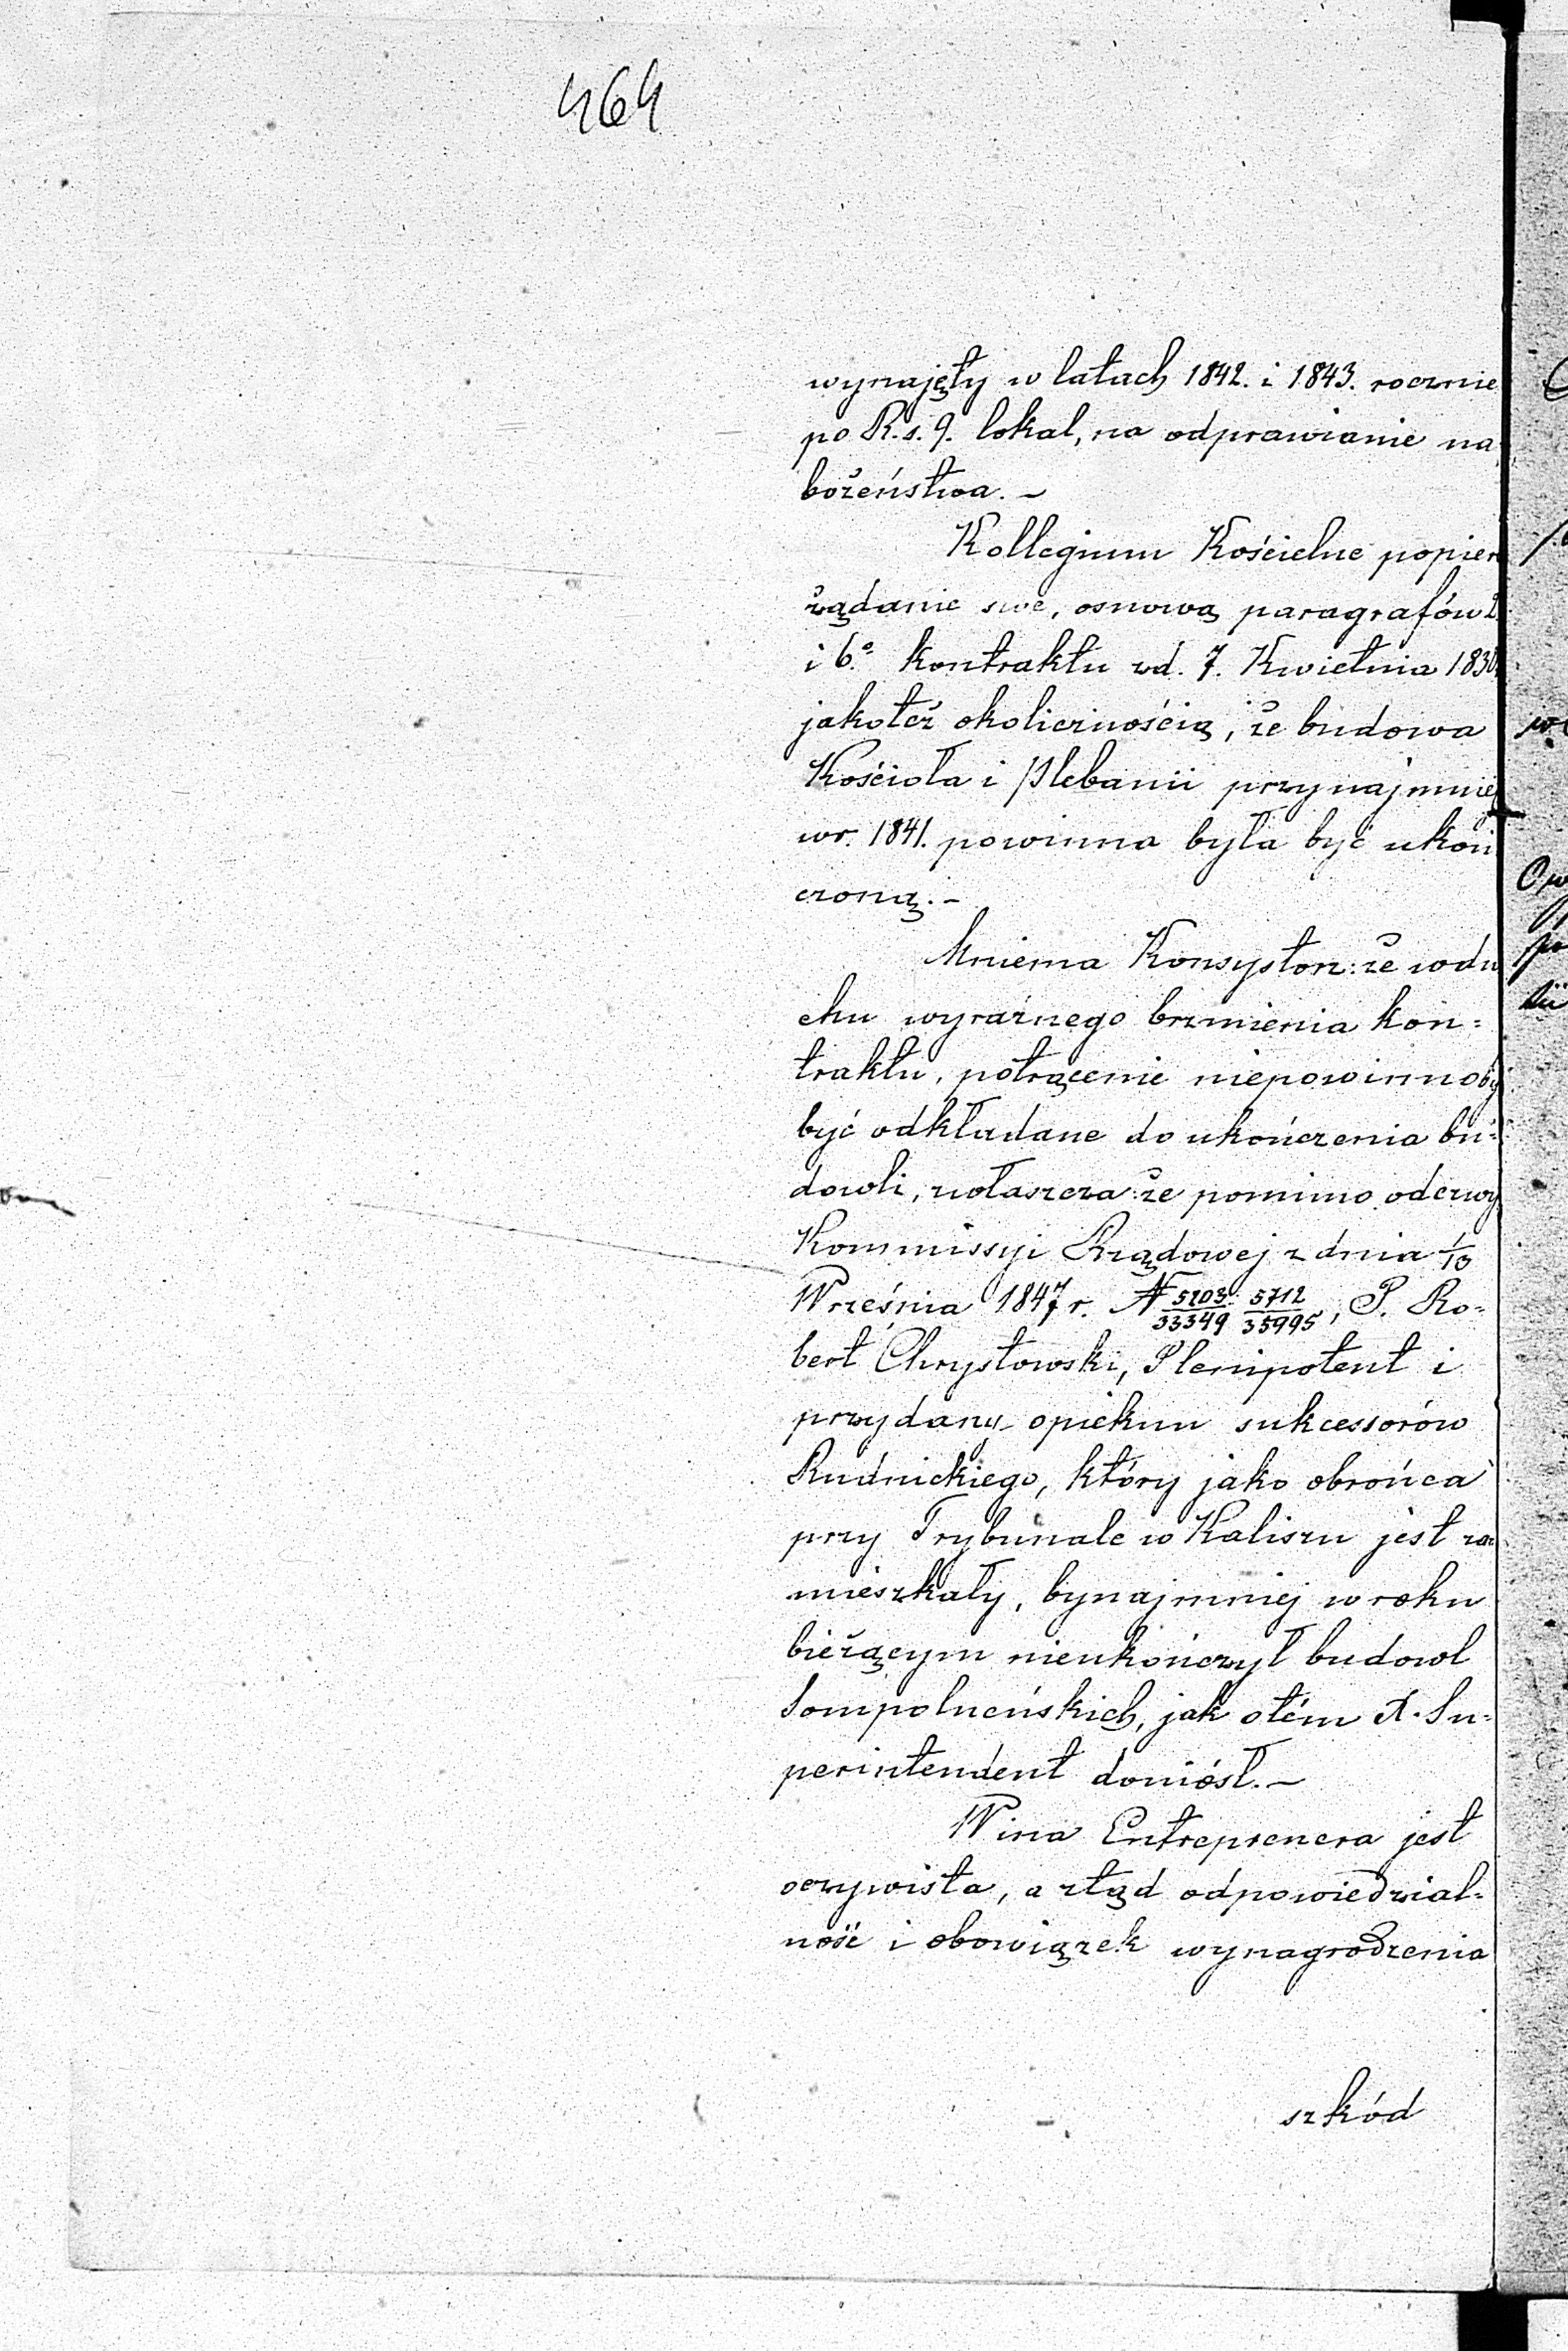 464
wynajęty w latach 1842. i 1843. rocznie
po R.s. 9. lokal, na odprawianie na
bożeństwa. –
Kollegium Kościelne popiera
żądanie swe, osnową paragrafów 2.
i 6.º kontraktu zd. 7. Kwietnia
jakoteż okolicznością, że budowa
Kościoła i Plebanii przynajmniej
wr. 1841. powinna była być ukoń
czoną. –
Mniema Konsystorz: że wdu
chu wyraźnego brzmienia kon=
traktu, potrącenie niepowinnoby
być odkładane do ukończenia bu=
dowli, zwłaszcza: że pomimo odezwy
Kommissyi Rządowej z dnia 1/13
Września 1847 r. N 5203/33349 5712/35995, P. Ro=
bert Chrystowski, Plenipotent i
przydany opiekun sukcessorów
Rudnickiego, który jako obrońca
przy Trybunale w Kaliszu jest za
mieszkały, bynajmniej w roku
bieżącym nieukończył budowl
Sompolneńskich, jak otém X. Su=
perintendent doniósł. –
Wina Entreprenera jest
oczywista, a ztąd odpowiedzial=
ność i obowiązek wynagrodzenia
szkód